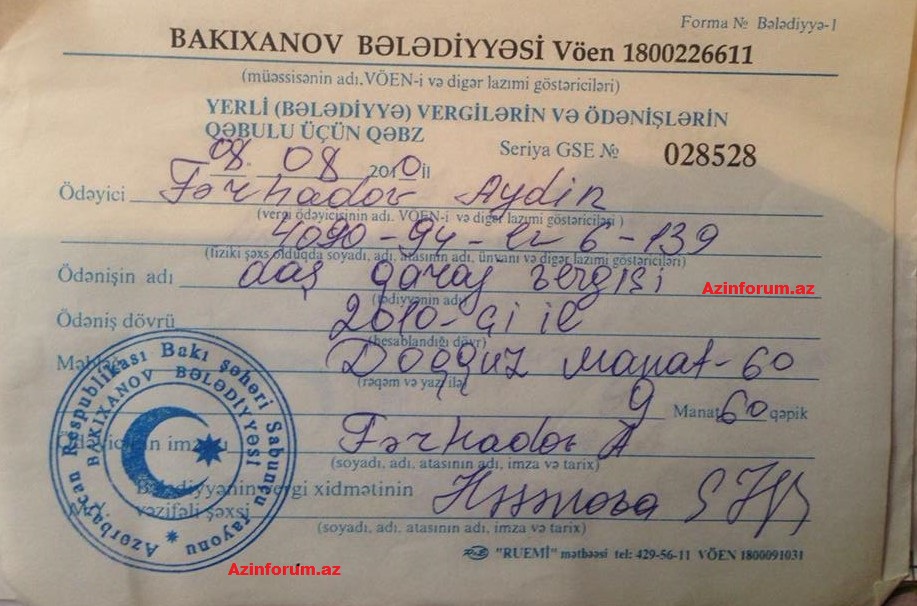 Forma № Bələdiyyə-1
BAKIXANOV BƏLƏDİYYƏSİ Vöen 1800226611
(müəssisənin adı.VÖEN-i və digər lazımi göstəriciləri)
YERLİ (BƏLƏDİYYƏ) VERGİLƏRİN VƏ ÖDƏNİŞLƏRİN
QƏBULU ÜÇÜN QƏBZ
Seriya GSE № 028528
08. 08 2010 il
Ödəyici Fərhadov Aydin
(vergi ödəyicisinin adı. VÖEN-i və digər lazımi göstəriciləri )
4090-94- 6-139
(fiziki şəxs olduqda soyadı, adı, atasının adı, ünvanı və digər lazımi göstəriciləri)
Ödənişin adı daş qaraj vergisi
Azinforum.az
(tədiyyənin adı)
Ödəniş dövrü 2010-çi il
(hesablandığı dövr)
Məbləğ Doqquz manat-60
(rəqəm və yazı ilə)
9 Manat 60 qəpik
Ödəyicinin imzası Fərhadov A
(soyadı, adı, atasının adı, imza və tarix)
Bələdiyyənin vergi xidmətinin
vəzifəli şəxsi
(soyadı, adı, atasının adı, imza və tarix)
Azərbaycan Respublikası Bakı şəhəri Sabunçu rayonu
BAKIXANOV BƏLƏDİYYƏSİ
"RUEMİ" mətbəəsi tel: 429-56-11 VÖEN 1800091031
Azinforum.az